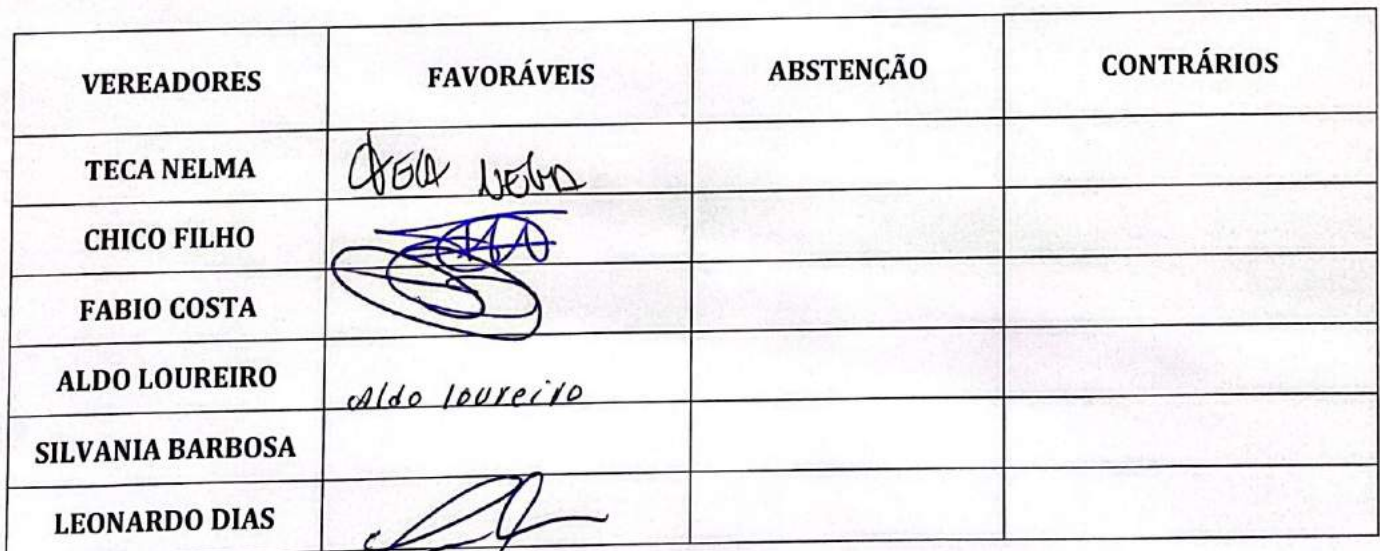 VEREADORES FAVORÁVEIS ABSTENÇÃO CONTRÁRIOS
TECA NELMA Teca Nelma
CHICO FILHO
FABIO COSTA
ALDO LOUREIRO Aldo Loureiro
SILVANIA BARBOSA
LEONARDO DIAS